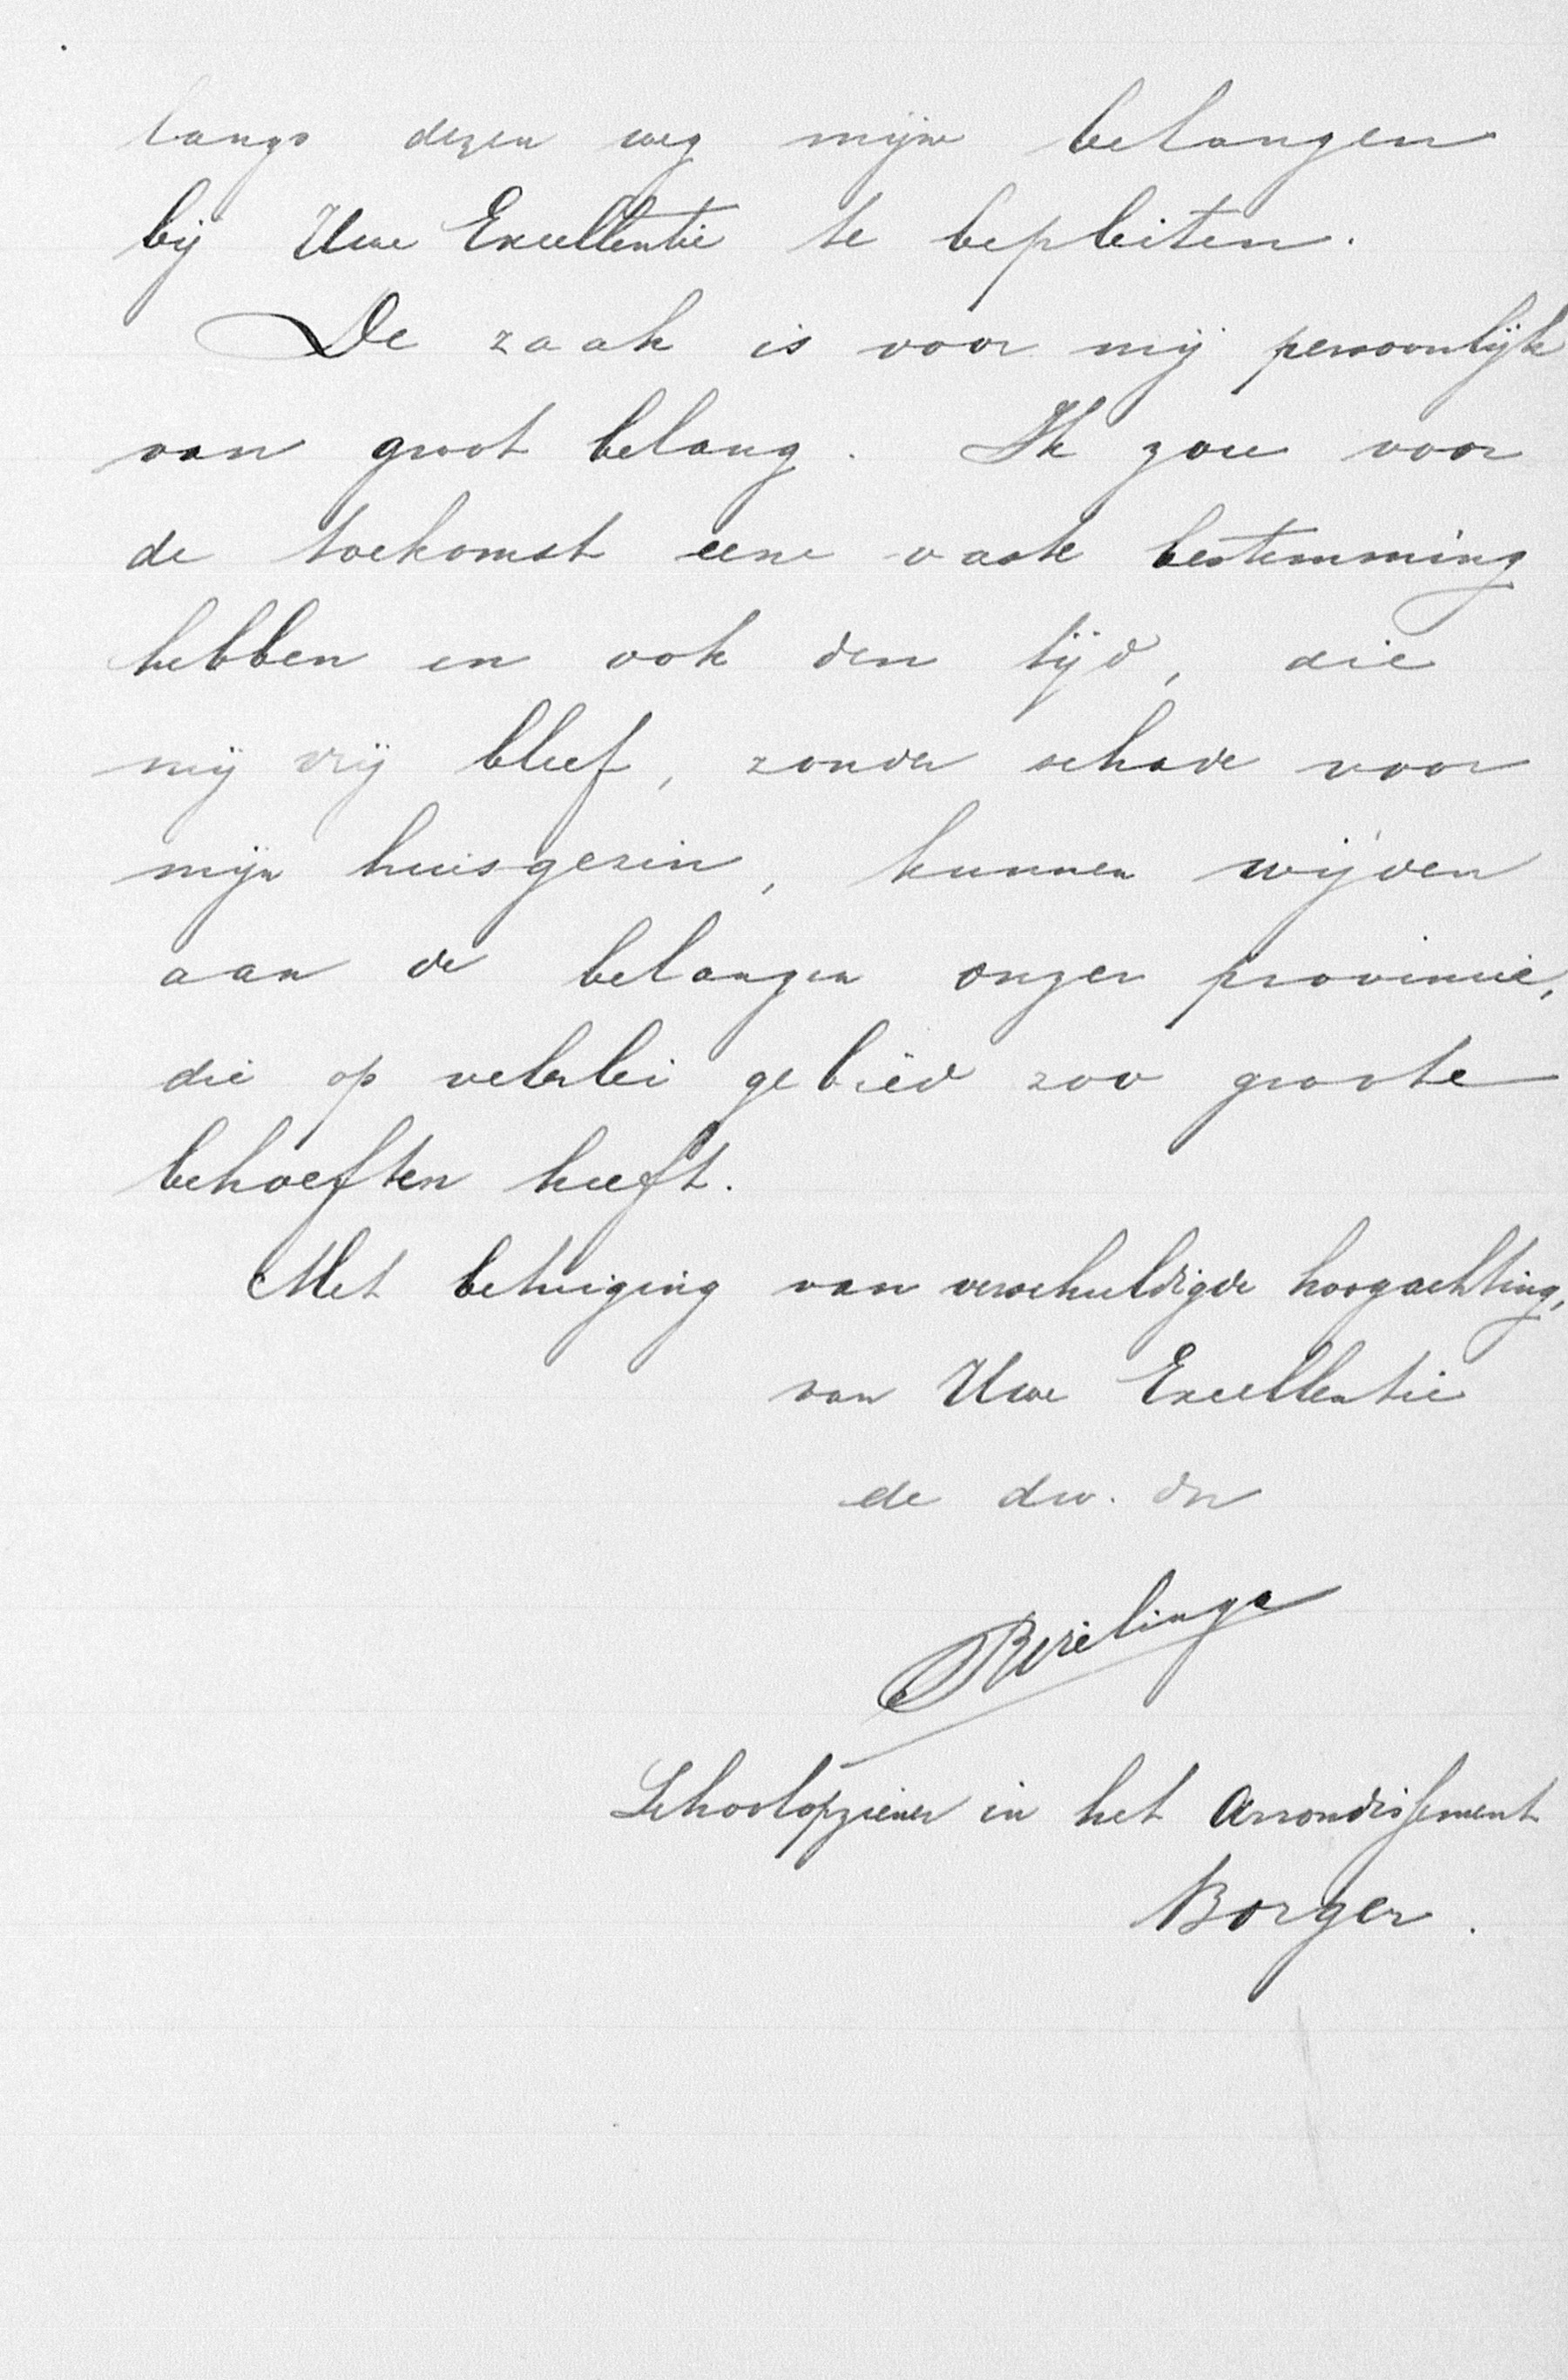 langs dezen weg mijne belangen
bij Uwe Excellentie te bepleiten.
De zaak is voor mij persoonlijk
van groot belang. Ik zou voor
de toekomst eene vaste bestemming
hebben en ook den tijd, die
mij vrij bleef, zonder schade voor
mijn huisgezin, kunnen wijden
aan de belangen onzer provincie,
die op velerlei gebied zoo groote
behoeften heeft.
Met betuiging van verschuldigde hoogachting,
van Uwe Excellentie
de dw. dr
Schoolopziener in het Arrondissement
Borger.